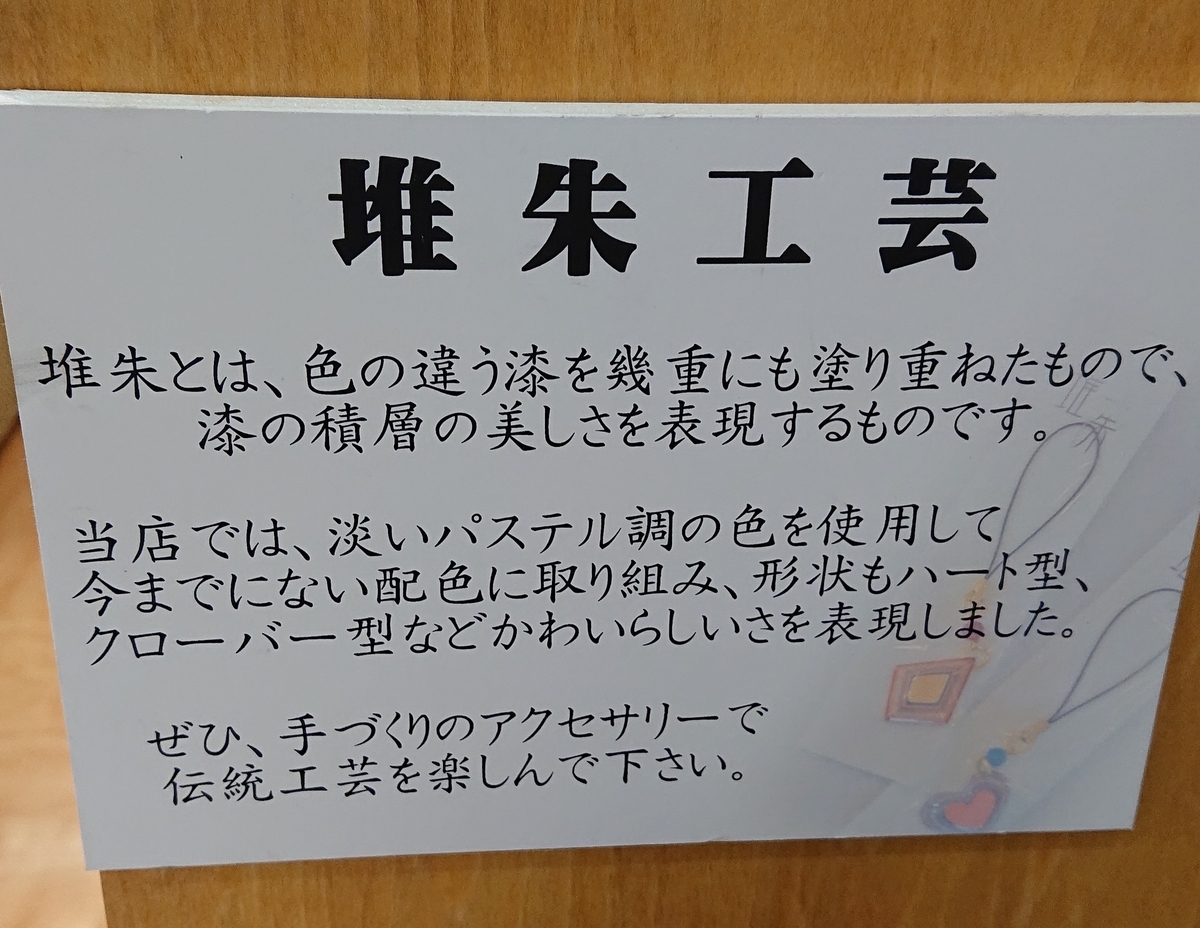 堆朱工芸
堆朱とは、色の違う漆を幾重にも塗り重ねたもので、
漆の積層の美しさを表現するものです。
当店では、淡いパステル調の色を使用して
今までにない配色に取り組み、形状もハート型、
クローバー型などかわいらしいさを表現しました。
ぜひ、手づくりのアクセサリーで
伝統工芸を楽しんで下さい。
堆朱